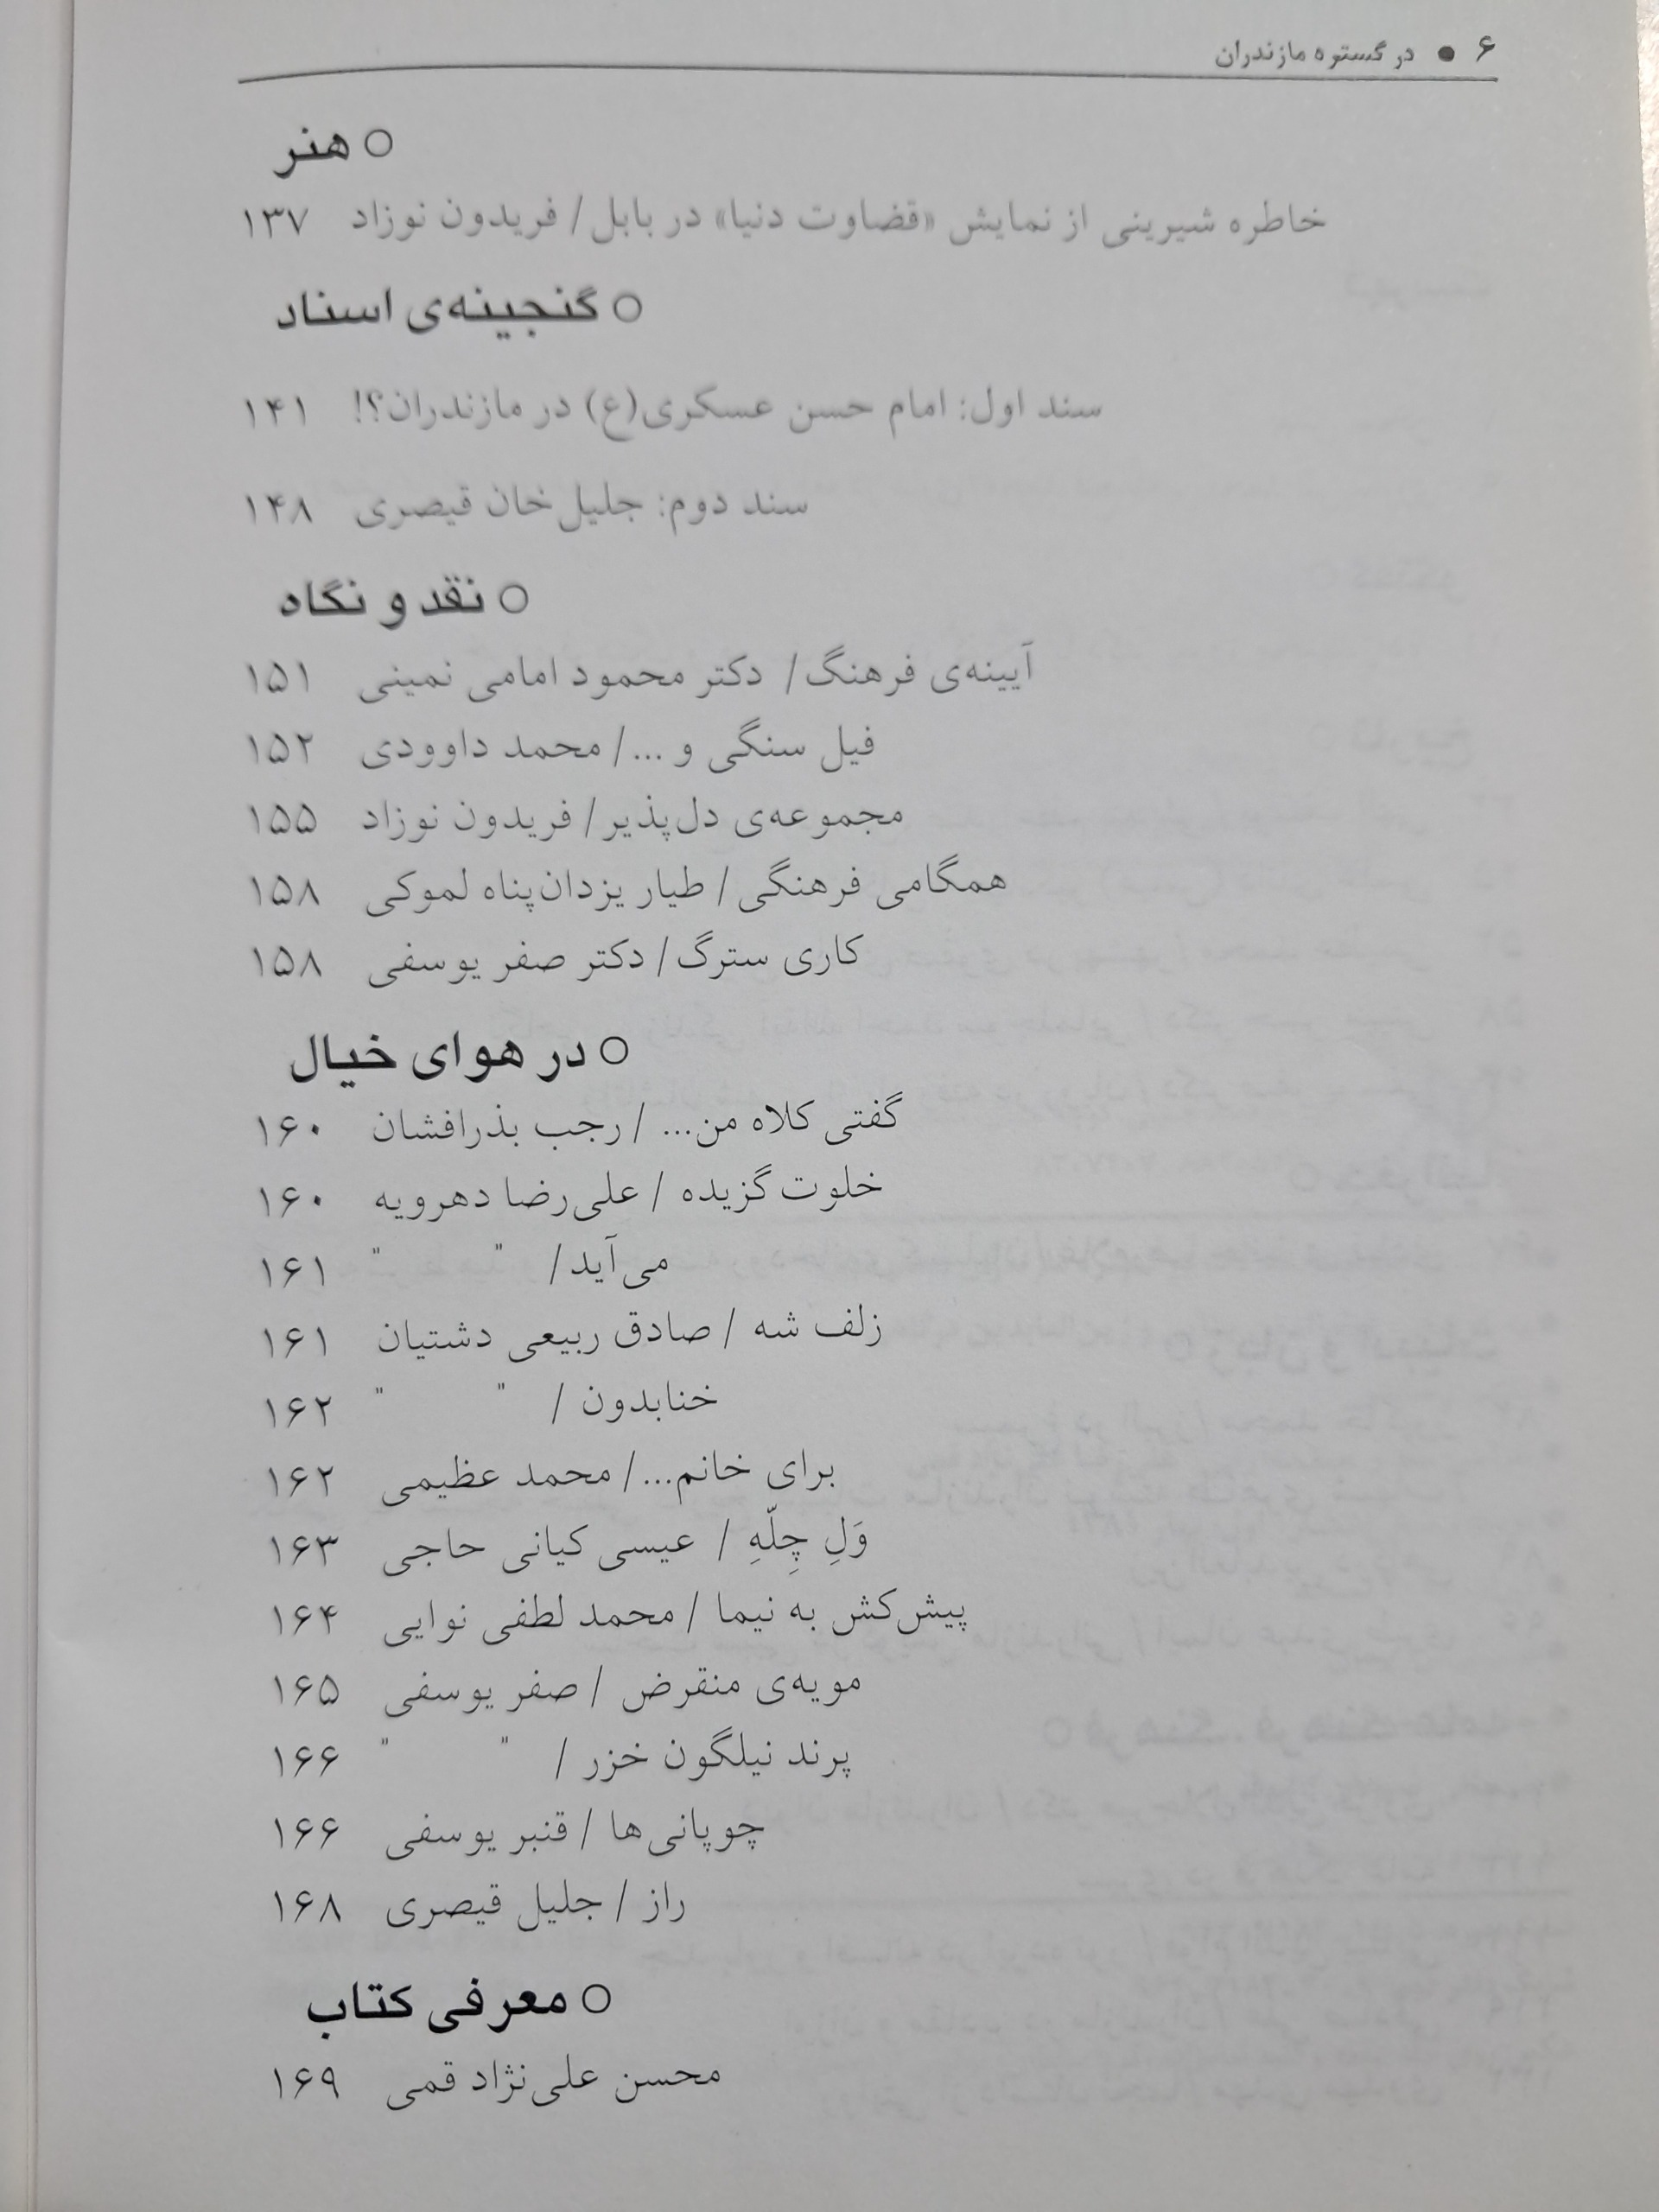 ۶ ● در گستره مازندران
○ هنر
خاطره شیرینی از نمایش «قضاوت دنیا» در بابل / فریدون نوزاد ۱۳۷
○ گنجینه‌ی اسناد
سند اول: امام حسن عسکری(ع) در مازندران؟! ۱۴۱
سند دوم: جلیل‌خان قیصری ۱۴۸
○ نقد و نگاه
آیینه‌ی فرهنگ / دکتر محمود امامی نمینی ۱۵۱
فیل سنگی و ... / محمد داوودی ۱۵۲
مجموعه‌ی دل‌پذیر / فریدون نوزاد ۱۵۵
همگامی فرهنگی / طیار یزدان‌پناه لموکی ۱۵۸
کاری سترگ / دکتر صفر یوسفی ۱۵۸
○ در هوای خیال
گفتی کلاه من... / رجب بذرافشان ۱۶۰
خلوت گزیده / علی‌رضا دهرویه ۱۶۰
می‌آید / " " ۱۶۱
زلف شه / صادق ربیعی دشتیان ۱۶۱
خنابدون / " " ۱۶۲
برای خانم... / محمد عظیمی ۱۶۲
وَلِ چِلّهِ / عیسی کیانی حاجی ۱۶۳
پیش‌کش به نیما / محمد لطفی نوایی ۱۶۴
مویه‌ی منقرض / صفر یوسفی ۱۶۵
پرند نیلگون خزر / " " ۱۶۶
چوپانی‌ها / قنبر یوسفی ۱۶۶
راز / جلیل قیصری ۱۶۸
○ معرفی کتاب
محسن علی‌نژاد قمی ۱۶۹